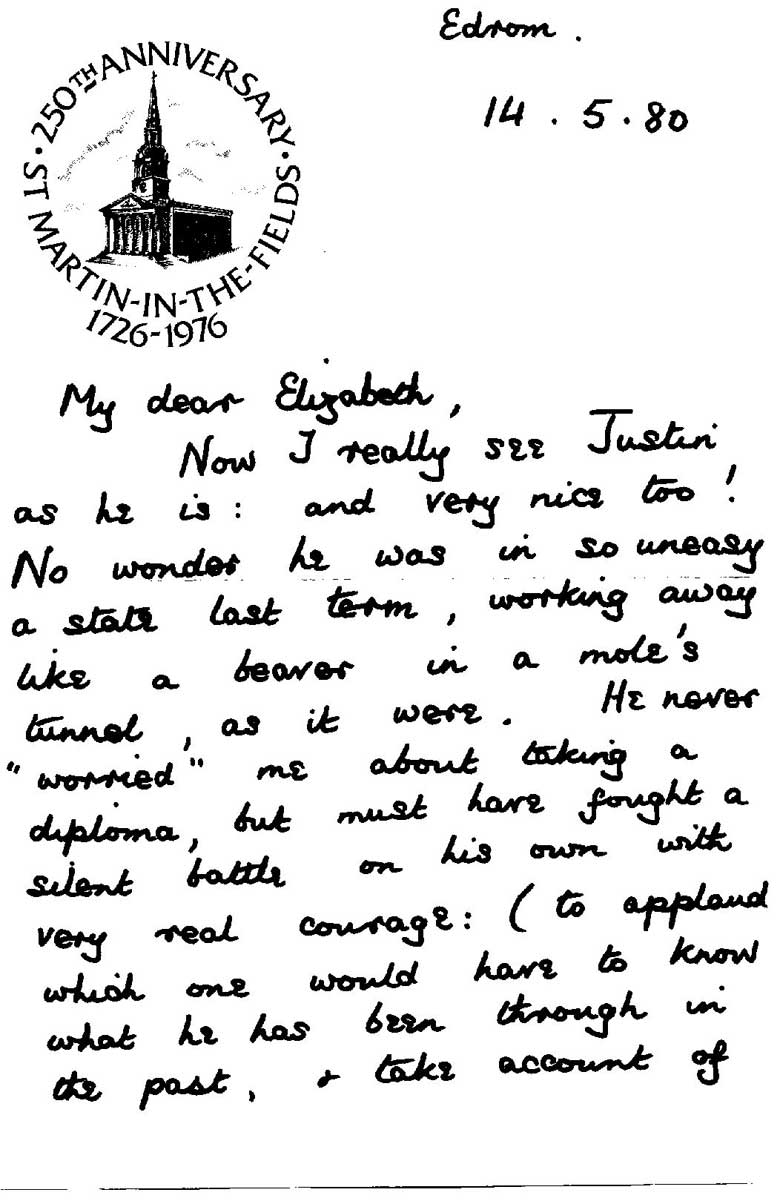 Edrom.
14 . 5 . 80
250TH ANNIVERSARY · ST MARTIN-IN-THE-FIELDS ·
1726-1976
My dear Elizabeth,
Now I really see Justin
as he is : and very nice too !
No wonder he was in so uneasy
a state last term, working away
like a beaver in a mole's
tunnel, as it were. He never
"worried" me about taking a
diploma, but must have fought a
silent battle on his own with
very real courage : ( to applaud
which one would have to know
what he has been through in
the past, & take account of